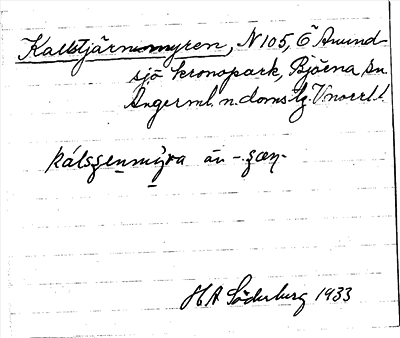 Kallstjärnmyren, N 105, Ö Anund-
sjö kronopark, Björna sn
Ångerml. n. doms lg. Vnorrl. l.
kálsʒenmy̓ra än -ʒæn-
HA Söderberg 1933